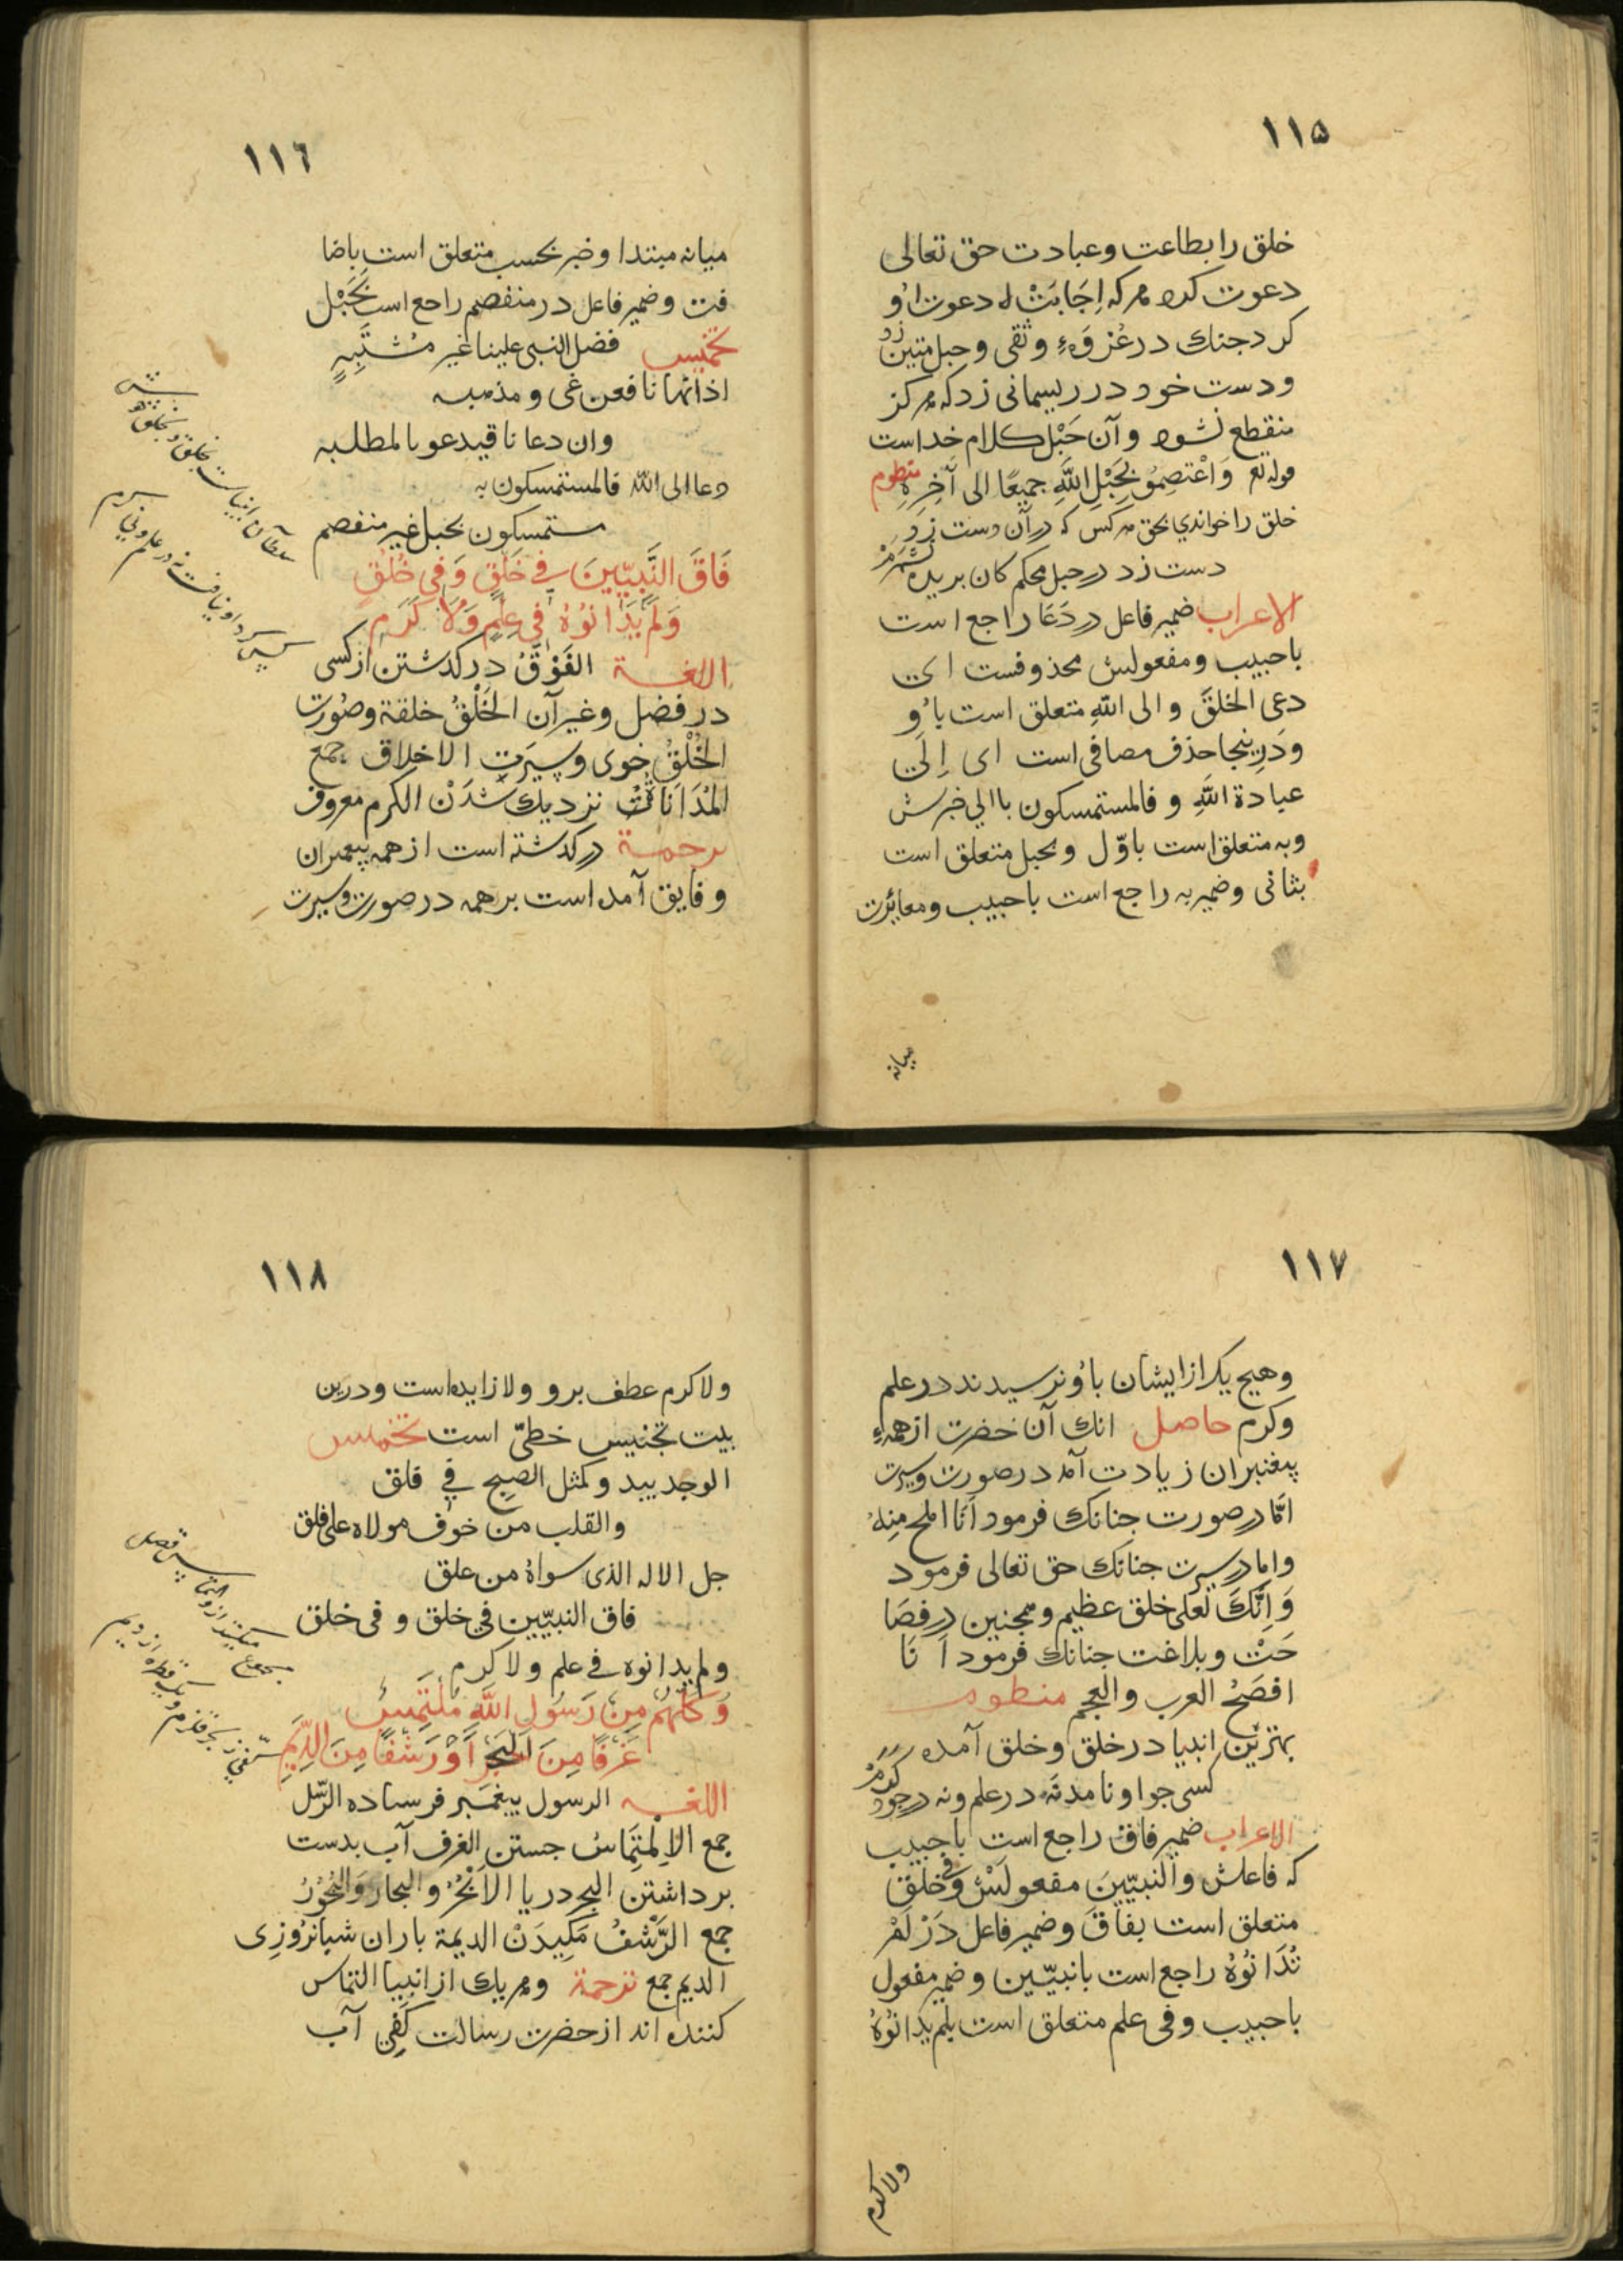 ١١۵
خلق را بطاعت وعبادت حق تعالی
دعوت کرد هر که اِجَابَتْ له دعوت اُو
کرد جنك در عُرْوَةِ وثقی وحبل متین زد
ودست خود در ریسمانی زد که هرکز
منقطع نشود وآن حَبْل کلام خداست
قوله تع وَاعْتَصِمُو بِحَبْلِ اللَّهِ جمیعًا الی آخِرِهِ منظوم
خلق را خواندی بحق هرکس که در آن دست زد
دست زد در حبل محکم کان بریده نشمرد
الاعراب ضمیر فاعل در دَعَا راجع است
با حبیب ومفعولش محذوفست ای
دعی الخلقَ والی اللهِ متعلق است باُو
ودرینجا حذف مضافی است ای اِلَی
عبادة اللهِ و فالمستمسکون با الی خبرش
وبه متعلق است باوّل وبحبل متعلق است
بثانی وضمیر به راجع است با حبیب ومعایرت
میانه
١١٦
میانه مبتدا وخبر بحسب متعلق است باضا
فت وضمیر فاعل در منفصم راجع است بحَبْل
تخمیس فضل النبی علینا غیر مُشتَبِهٍ
اذ انها نا فعن غی ومذهبه
وان دعا نا قیدعو بالمطلبه
دعا الی الله فالمستمسکون به
مستمسکون بحبل غیر منفصم
فَاقَ النَّبِیّینَ فی خَلْقٍ وَفی خُلُقٍ
وَلَمْ یُدَانُوْهُ فی عِلْمٍ وَلَا کَرَمٍ
اللغة الفَوْقُ درکذشتن از کسی
در فضل وغیر آن الخَلْقُ خلقة وصُورت
الخُلْقُ خوی وسِیرَت الاخلاق جمع
المُدَانَاةُ نزدیك شُدَنْ الکرم معروف
ترجمة درکذشته است از همه پیغمبران
وفایق آمده است بر همه در صورت وسیرت
١١٧
وهیچ یك از ایشان باُو نرسیدند در علم
وکرم حاصل انك آن حضرت از همهء
پیغنبران زیادت آمد در صورت وسیرت
امّا در صورت جنانك فرمود اَنَا املح مِنهُ
واما در سیرت جنانك حق تعالی فرمود
وَاِنَّكَ لَعلی خلق عظیم وهمجنین در فصَا
حَتْ وبلاغت جنانك فرمود اَنَا
افصَحُ العرب والعجم منظوم
بهترین انبیا در خلق وخلق آمده
کسی جو او نامدنه در علم ونه در جود کرم
الاعراب ضمیر فاق راجع است با حبیب
که فاعلش والنبیّینَ مفعولَشْ وَفی خلق
متعلق است بفاقَ وضمیر فاعل دَرْ لَمْ
یُدَانُوْهُ راجع است بانبیّین وضمیر مفعول
با حبیب وفی علم متعلق است بلم یدانُوْهُ
ولا کرم
١١٨
ولا کرم عطف برو ولا زایده است ودرین
بیت تجنیس خطیّ است تخمیس
الوجد یبد وکمثل الصبح فی فلق
والقلب من خوف مولاه علی قلق
جل الاله الذی سواهُ من علق
فاق النبیّین فی خلق وفی خلق
ولم یدانوه فی علم ولا کرم
وَکُلُّهُمْ مِنْ رَسُولِ اللَّهِ مُلْتَمِسٌ
غَرْفًا مِنَ البَحْرِ اَوْ رَشْفًا مِنَ الدِّیَمِ
اللغه الرسول پیغمبر فرستاده الرُّسل
جمع الاِلْتِمَاسُ جستن الغرف آب بدست
برداشتن البحر دریا الاَبْحُرُ والبحار وَالبُحُوْرُ
جمع الرَّشْفُ مَکِیدَنْ الدیمة باران شبانْرُوْزِی
الدیم جمع ترجمة وهر یك از انبیا التماس
کننده اند از حضرت رسالت کَفِی آب